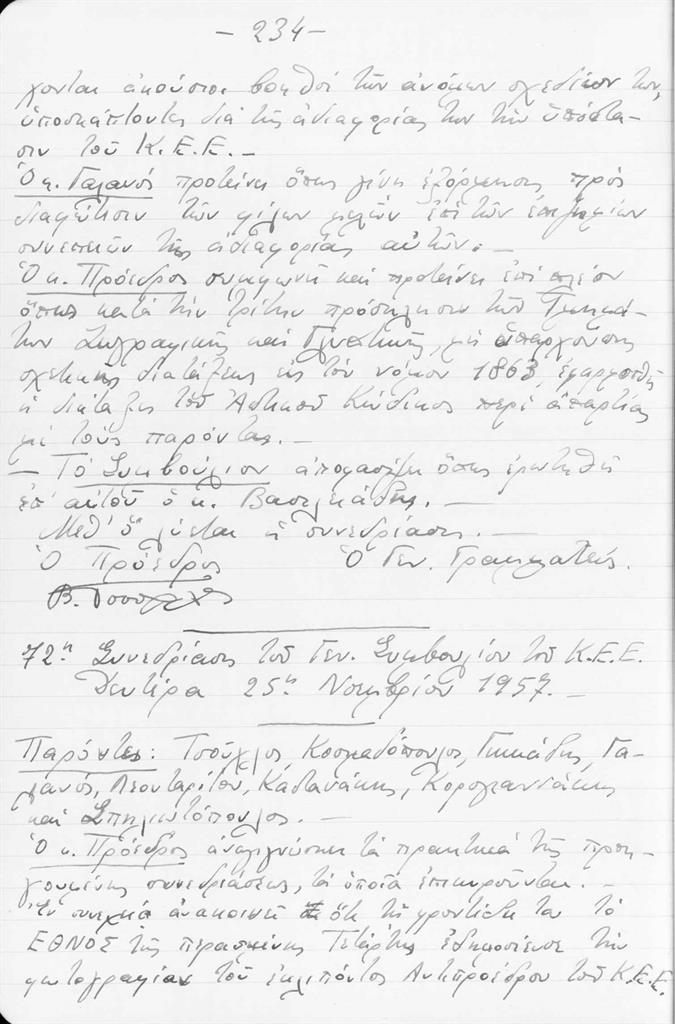 — 234 —
χονται ἀκούσιοι βοηθοὶ τῶν ἀνόμων σχεδίων των,
ὑποσκάπτοντες διὰ τῆς ἀδιαφορίας των τὴν ὑπόστα-
σιν τοῦ Κ.Ε.Ε. —
Ὁ κ. Γαλανός προτείνει ὅπως γίνῃ ἐξόρμησις πρὸς
διαφώτισιν τῶν φίλων μελῶν ἐπὶ τῶν ἐπιζημίων
συνεπειῶν τῆς ἀδιαφορίας αὐτῶν. —
Ὁ κ. Πρόεδρος συμφωνεῖ καὶ προτείνει ἐπὶ πλέον
ὅπως κατὰ τὴν τρίτην πρόσκλησιν τῶν Τμημά-
των Ζωγραφικῆς καὶ Γλυπτικῆς, μὴ ὑπαρχούσης
σχετικῆς διατάξεως εἰς τὸν νόμον 1863, ἐφαρμοσθῇ
ἡ διάταξις τοῦ Ἀστικοῦ Κώδικος περὶ ἀπαρτίας
μὲ τοὺς παρόντας. —
— Τὸ Συμβούλιον ἀποφασίζει ὅπως ἐρωτηθῇ
ἐπ' αὐτοῦ ὁ κ. Βασιλειάδης. —
Μεθ' ὃ λύεται ἡ συνεδρίασις. —
Ὁ Πρόεδρος Ὁ Γεν. Γραμματεύς.
Β. Τσούχλος
72η Συνεδρίασις τοῦ Γεν. Συμβουλίου τοῦ Κ.Ε.Ε.
Δευτέρα 25η Νοεμβρίου 1957. —
Παρόντες: Τσούχλος, Κοσμαδόπουλος, Γηκάδης, Γα-
λανός, Λεονταρίτου, Καστανάκης, Κορογιαννάκης
καὶ Σπηλιωτόπουλος. —
Ὁ κ. Πρόεδρος ἀναγιγνώσκει τὰ πρακτικὰ τῆς προη-
γουμένης συνεδριάσεως, τὰ ὁποῖα ἐπικυροῦνται. —
Ἐν συνεχείᾳ ἀνακοινεῖ ὅτι τῇ φροντίδι του τὸ
ΕΘΝΟΣ τῆς περασμένης Τετάρτης ἐδημοσίευσε τὴν
φωτογραφίαν τοῦ ἐκλιπόντος Ἀντιπροέδρου τοῦ Κ.Ε.Ε.